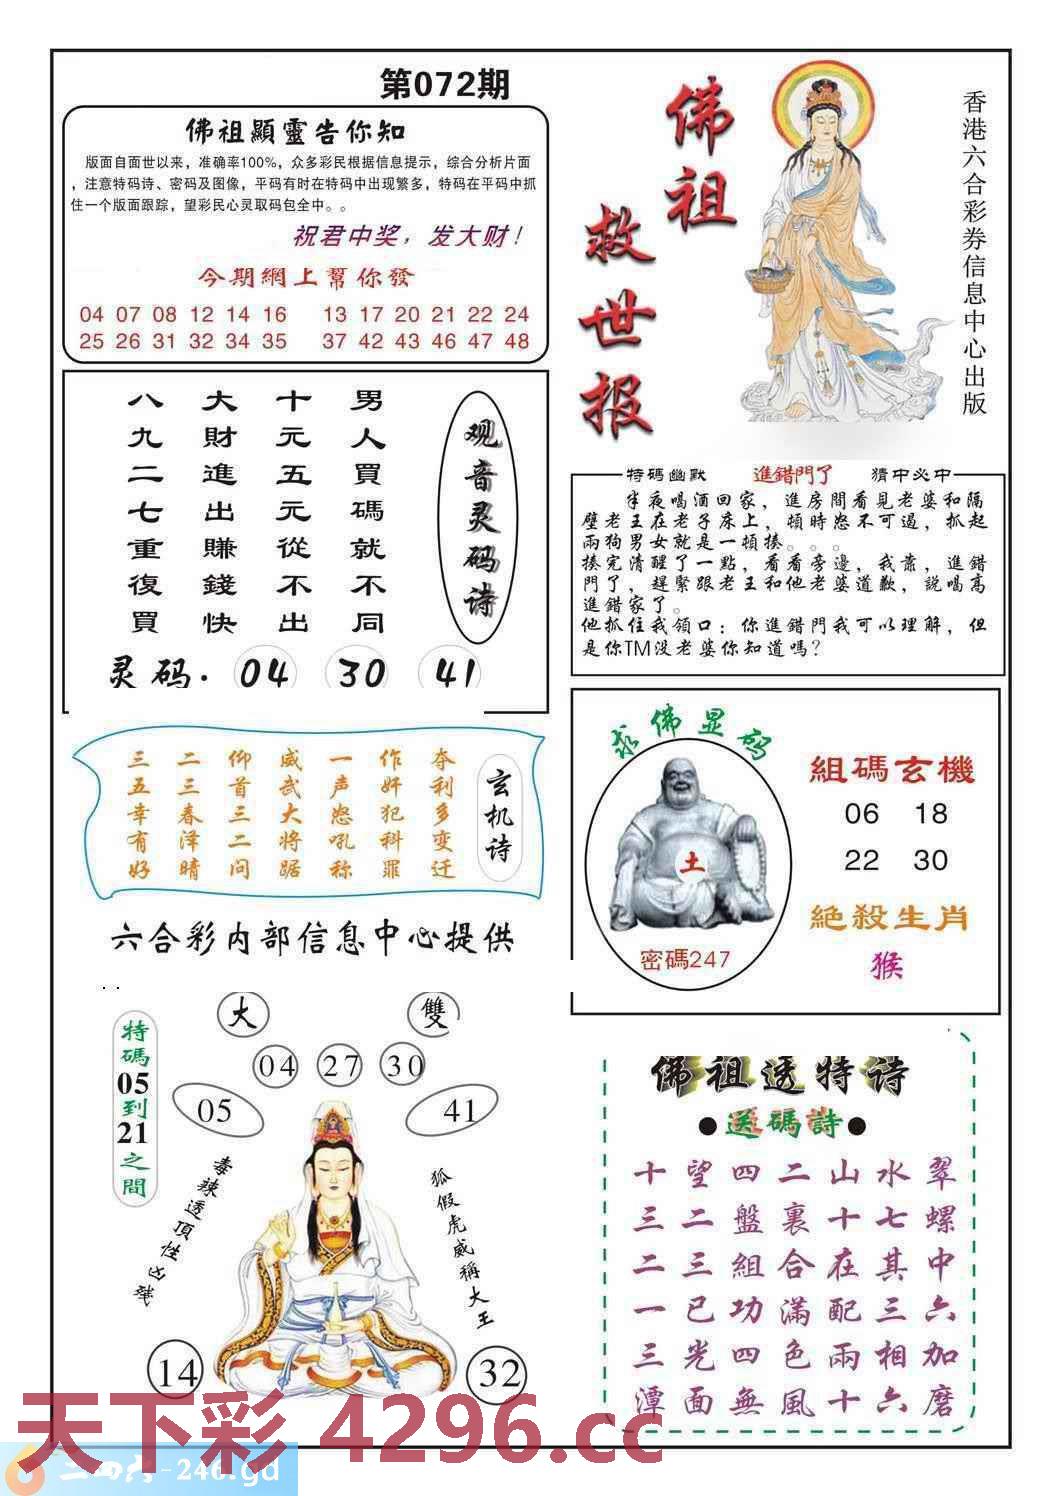 第072期
佛祖顯靈告你知
版面自面世以来，准确率100%，众多彩民根据信息提示，综合分析片面
，注意特码诗、密码及图像，平码有时在特码中出现繁多，特码在平码中抓
住一个版面跟踪，望彩民心灵取码包全中。。
祝君中奖，发大财！
今期網上幫你發
04 07 08 12 14 16 13 17 20 21 22 24
25 26 31 32 34 35 37 42 43 46 47 48
佛祖救世报
香港六合彩券信息中心出版
观音灵码诗
男人買碼就不同
十元五元從不出
大財進出賺錢快
八九二七重復買
灵码. 04 30 41
特碼幽默 進錯門了 猜中必中
半夜喝酒回家，進房間看見老婆和隔
壁老王在老子床上，頓時怒不可遏，抓起
兩狗男女就是一頓揍。。。
揍完清醒了一點，看看旁邊，我靠，進錯
門了，趕緊跟老王和他老婆道歉，説喝高
進錯家了。
他抓住我領口：你進錯門我可以理解，但
是你TM没老婆你知道嗎？
玄机诗
夺利多变迁
作奸犯科罪
一声怒吼称
威武大将踞
仰首三二问
二三春泽晴
三五幸有好
六合彩内部信息中心提供
求佛显码
土
密碼247
組碼玄機
06 18
22 30
絕殺生肖
猴
特碼05到21之間
大 雙
04 27 30
05 41
毒辣透頂性凶残
狐假虎威稱大王
14 32
佛祖透特诗
●送碼詩●
十望四二山水翠
三二盤裏十七螺
二三組合在其中
一已功滿配三六
三光四色兩相加
潭面無風十六磨
天下彩 4296.cc
二四六-246.gd